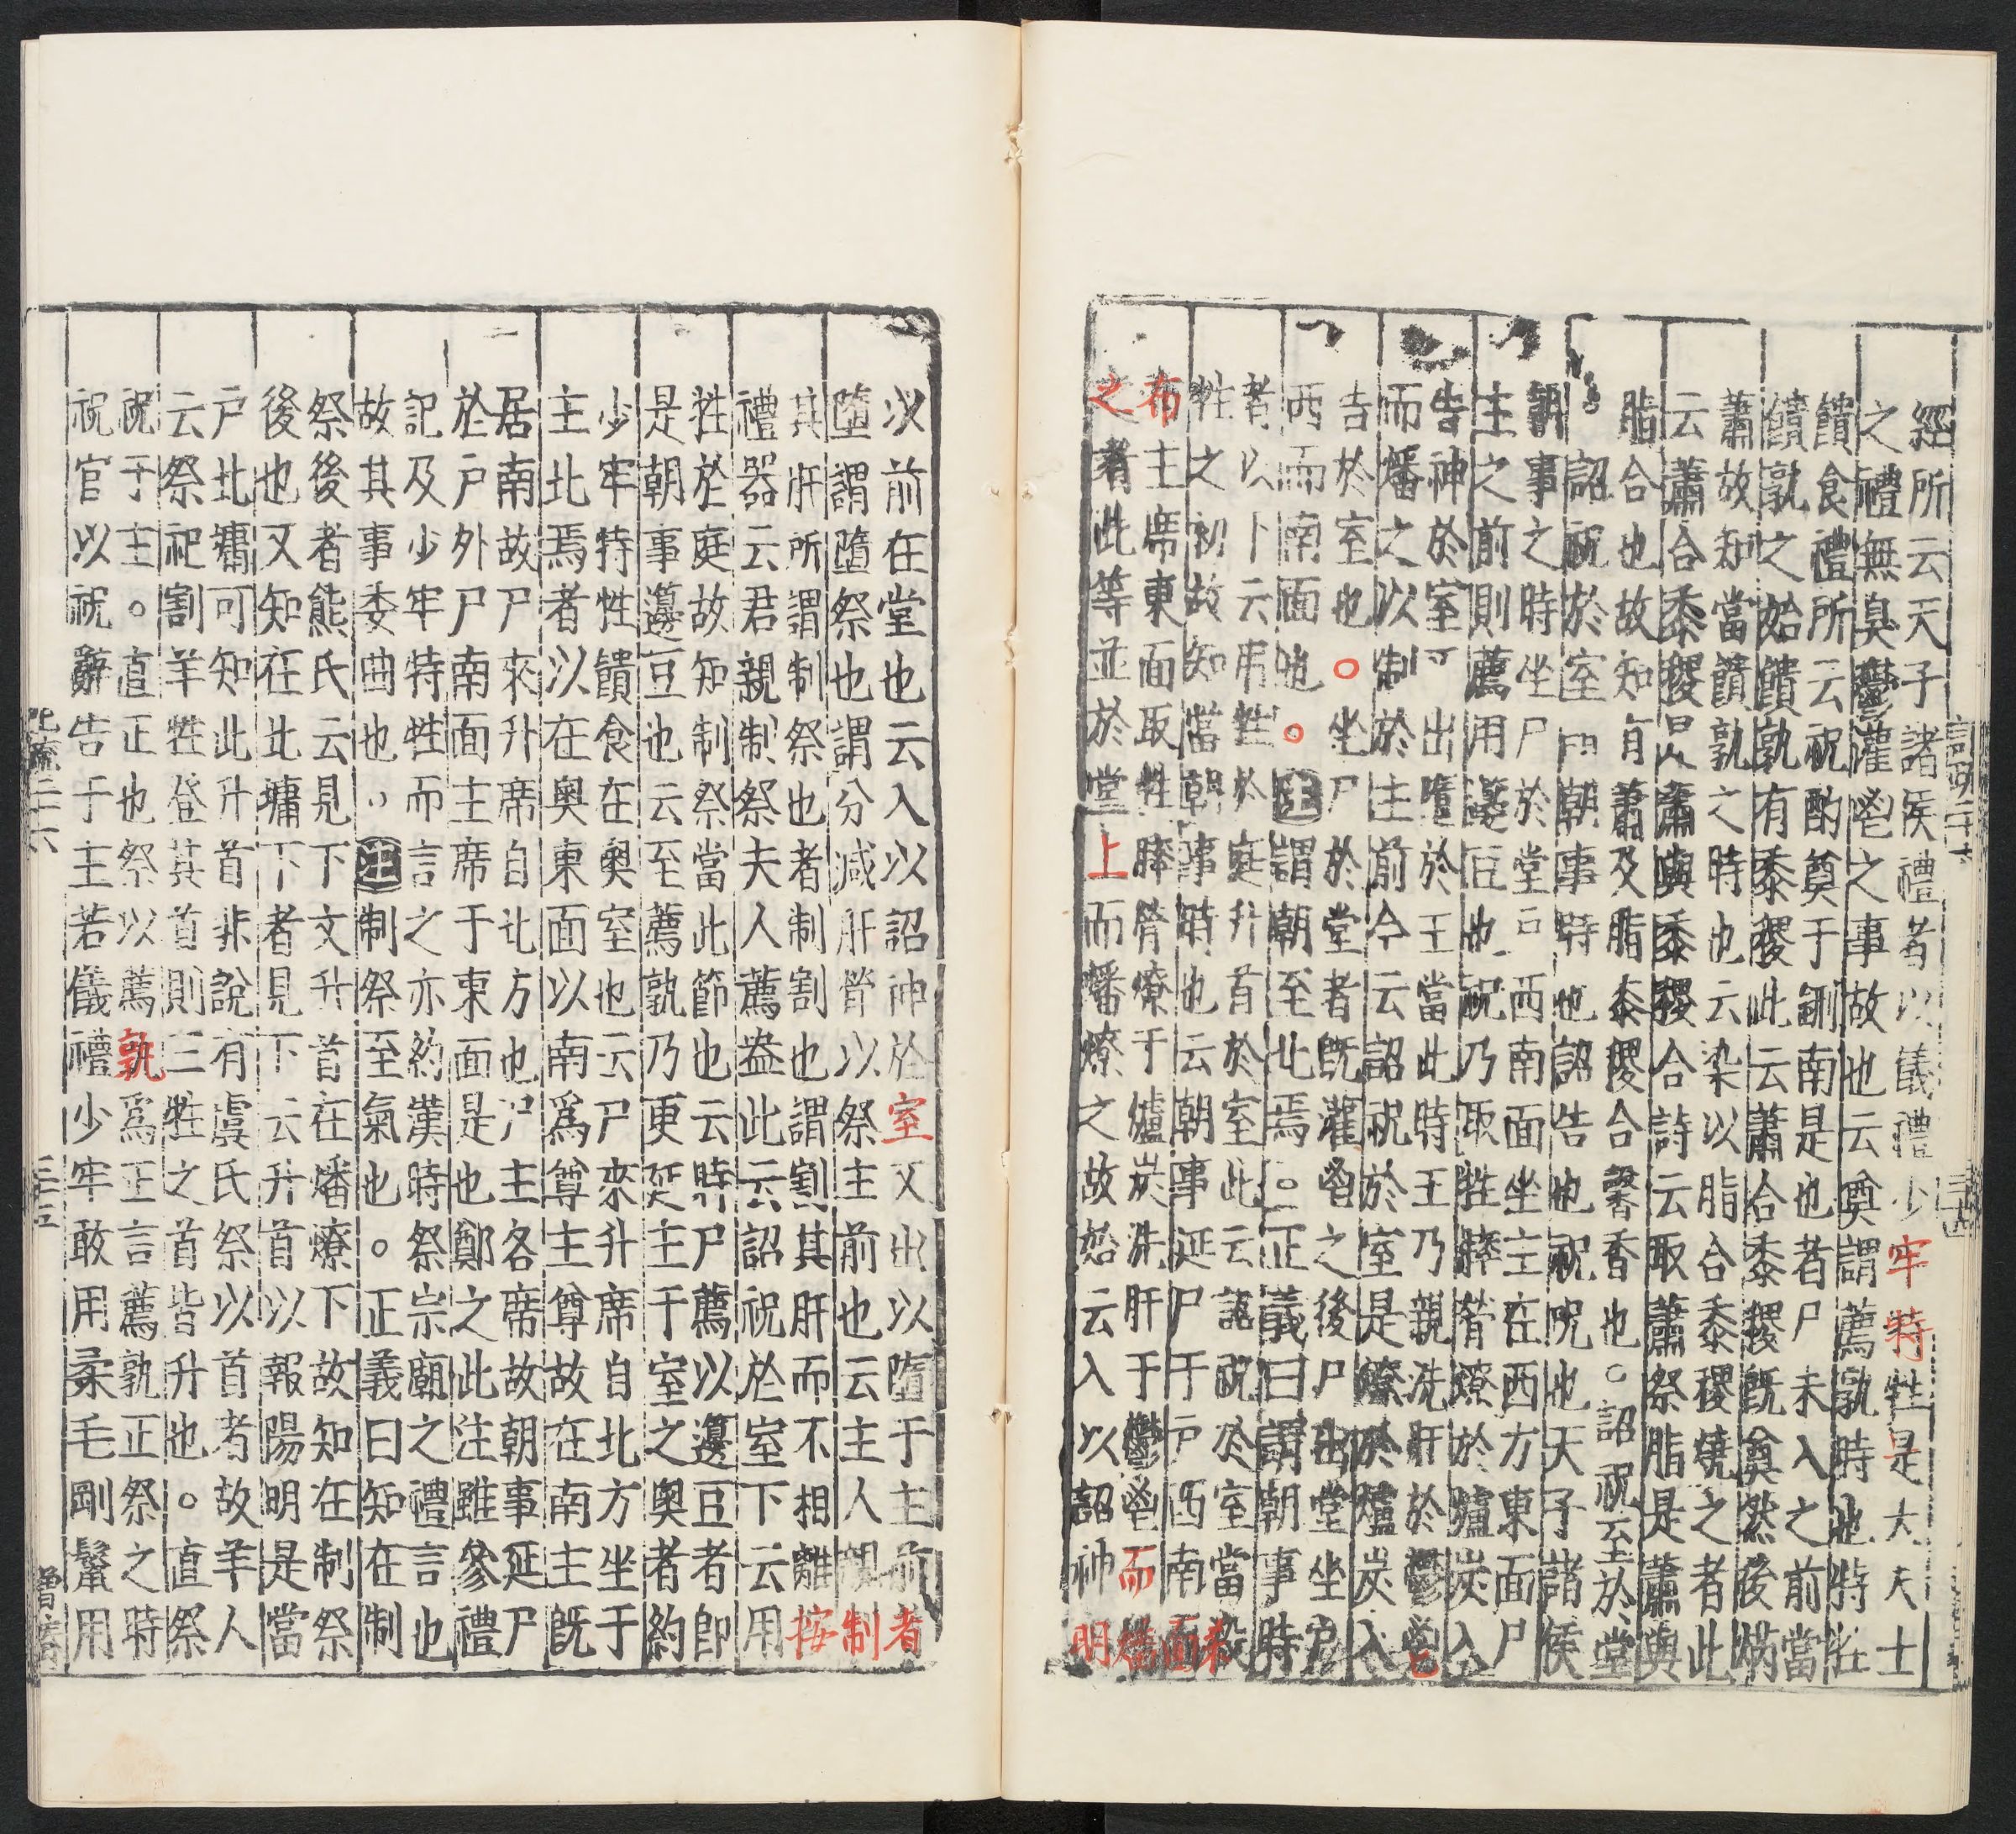 經所云天子諸侯禮者以儀禮少牢特牲是大夫士
之禮無臭鬱灌鬯之事故也云奠謂薦孰時也特牲
饋食禮所云祝酌奠于鉶南是也者尸未入之前當
饋孰之始饋孰有黍稷此云蕭合黍稷既奠然後焫
蕭故知當饋孰之時也云染以脂合黍稷燒之者此
云蕭合黍稷是蕭與黍稷合詩云取蕭祭脂是蕭與
脂合也故知有蕭及脂黍稷合馨香也。詔祝至於堂
詔祝於室 朝事時也詔告也祝呪也天子諸侯
朝事之時坐尸於堂戶西南面坐主在西方東面尸
主之前則薦用籩豆也祝乃取牲膟膋燎於爐炭入
告神於室又出墮於主當此時王乃親洗肝於鬱鬯
而燔之以制於主前今云詔祝於室是燎於爐炭入
告於室也。坐尸於堂者既灌鬯之後尸出堂坐戶
西而南面也。注謂朝至北焉。正義曰謂朝事時
者以下云用牲於庭升首於室此云詔祝於室當殺
牲之初故知當朝事時也云朝事延尸于戶西南面
布主席東面取牲膟膋燎于爐炭洗肝于鬱鬯而燔
之者此等並於堂上而燔燎之故始云入以詔神明
以前在堂也云入以詔神於室又出以墮于主前者
墮謂墮祭也謂分減肝膋以祭主前也云主人親制
其肝所謂制祭也者制割也謂割其肝而不相離按
禮器云君親制祭夫人薦盎此云詔祝於室下云用
牲於庭故知制祭當此節也云時尸薦以籩豆者即
是朝事籩豆也云至薦孰乃更延主于室之奧者約
少牢特牲饋食在奧室也云尸來升席自北方坐于
主北焉者以在奧東面以南為尊主尊故在南主既
居南故尸來升席自北方也尸主各席故朝事延尸
於戶外尸南面主席于東面是也鄭之此注雖參禮
記及少牢特牲而言之亦約漢時祭宗廟之禮言也
故其事委曲也。注制祭至氣也。正義曰知在制
祭後者熊氏云見下文升首在燔燎下故知在制祭
後也又知在北墉下者見下云升首以報陽明是當
戶北墉可知此升首非說有虞氏祭以首者故羊人
云祭祀割羊牲登其首則三牲之首皆升也。直祭
祝于主。直正也祭以薦孰為正言薦孰正祭之時
祝官以祝辭告于主若儀禮少牢敢用柔毛剛鬣用